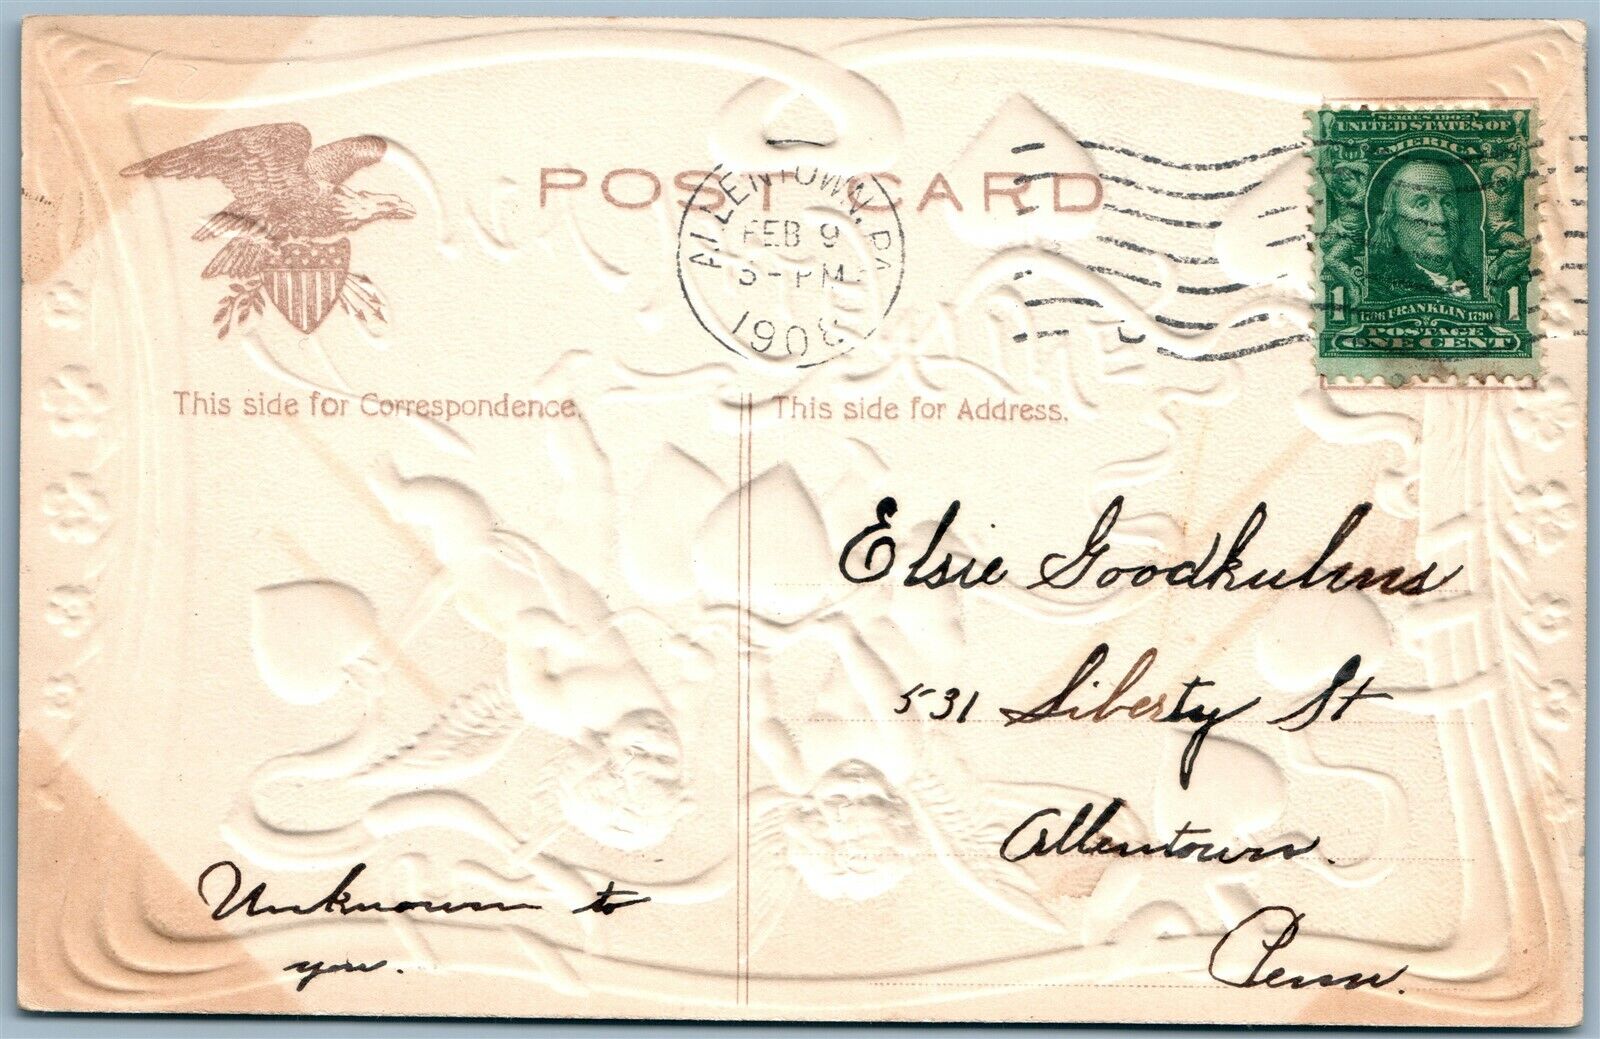 POST CARD
ALLENTOWN, PA.
FEB 9
3-PM
1908
SERIES 1902
UNITED STATES OF
AMERICA
1 1766 FRANKLIN 1790 1
POSTAGE
ONE CENT
This side for Correspondence.
This side for Address.
Elsie Goodkulens
531 Liberty St
Allentown.
Penn.
Unknown to
you.